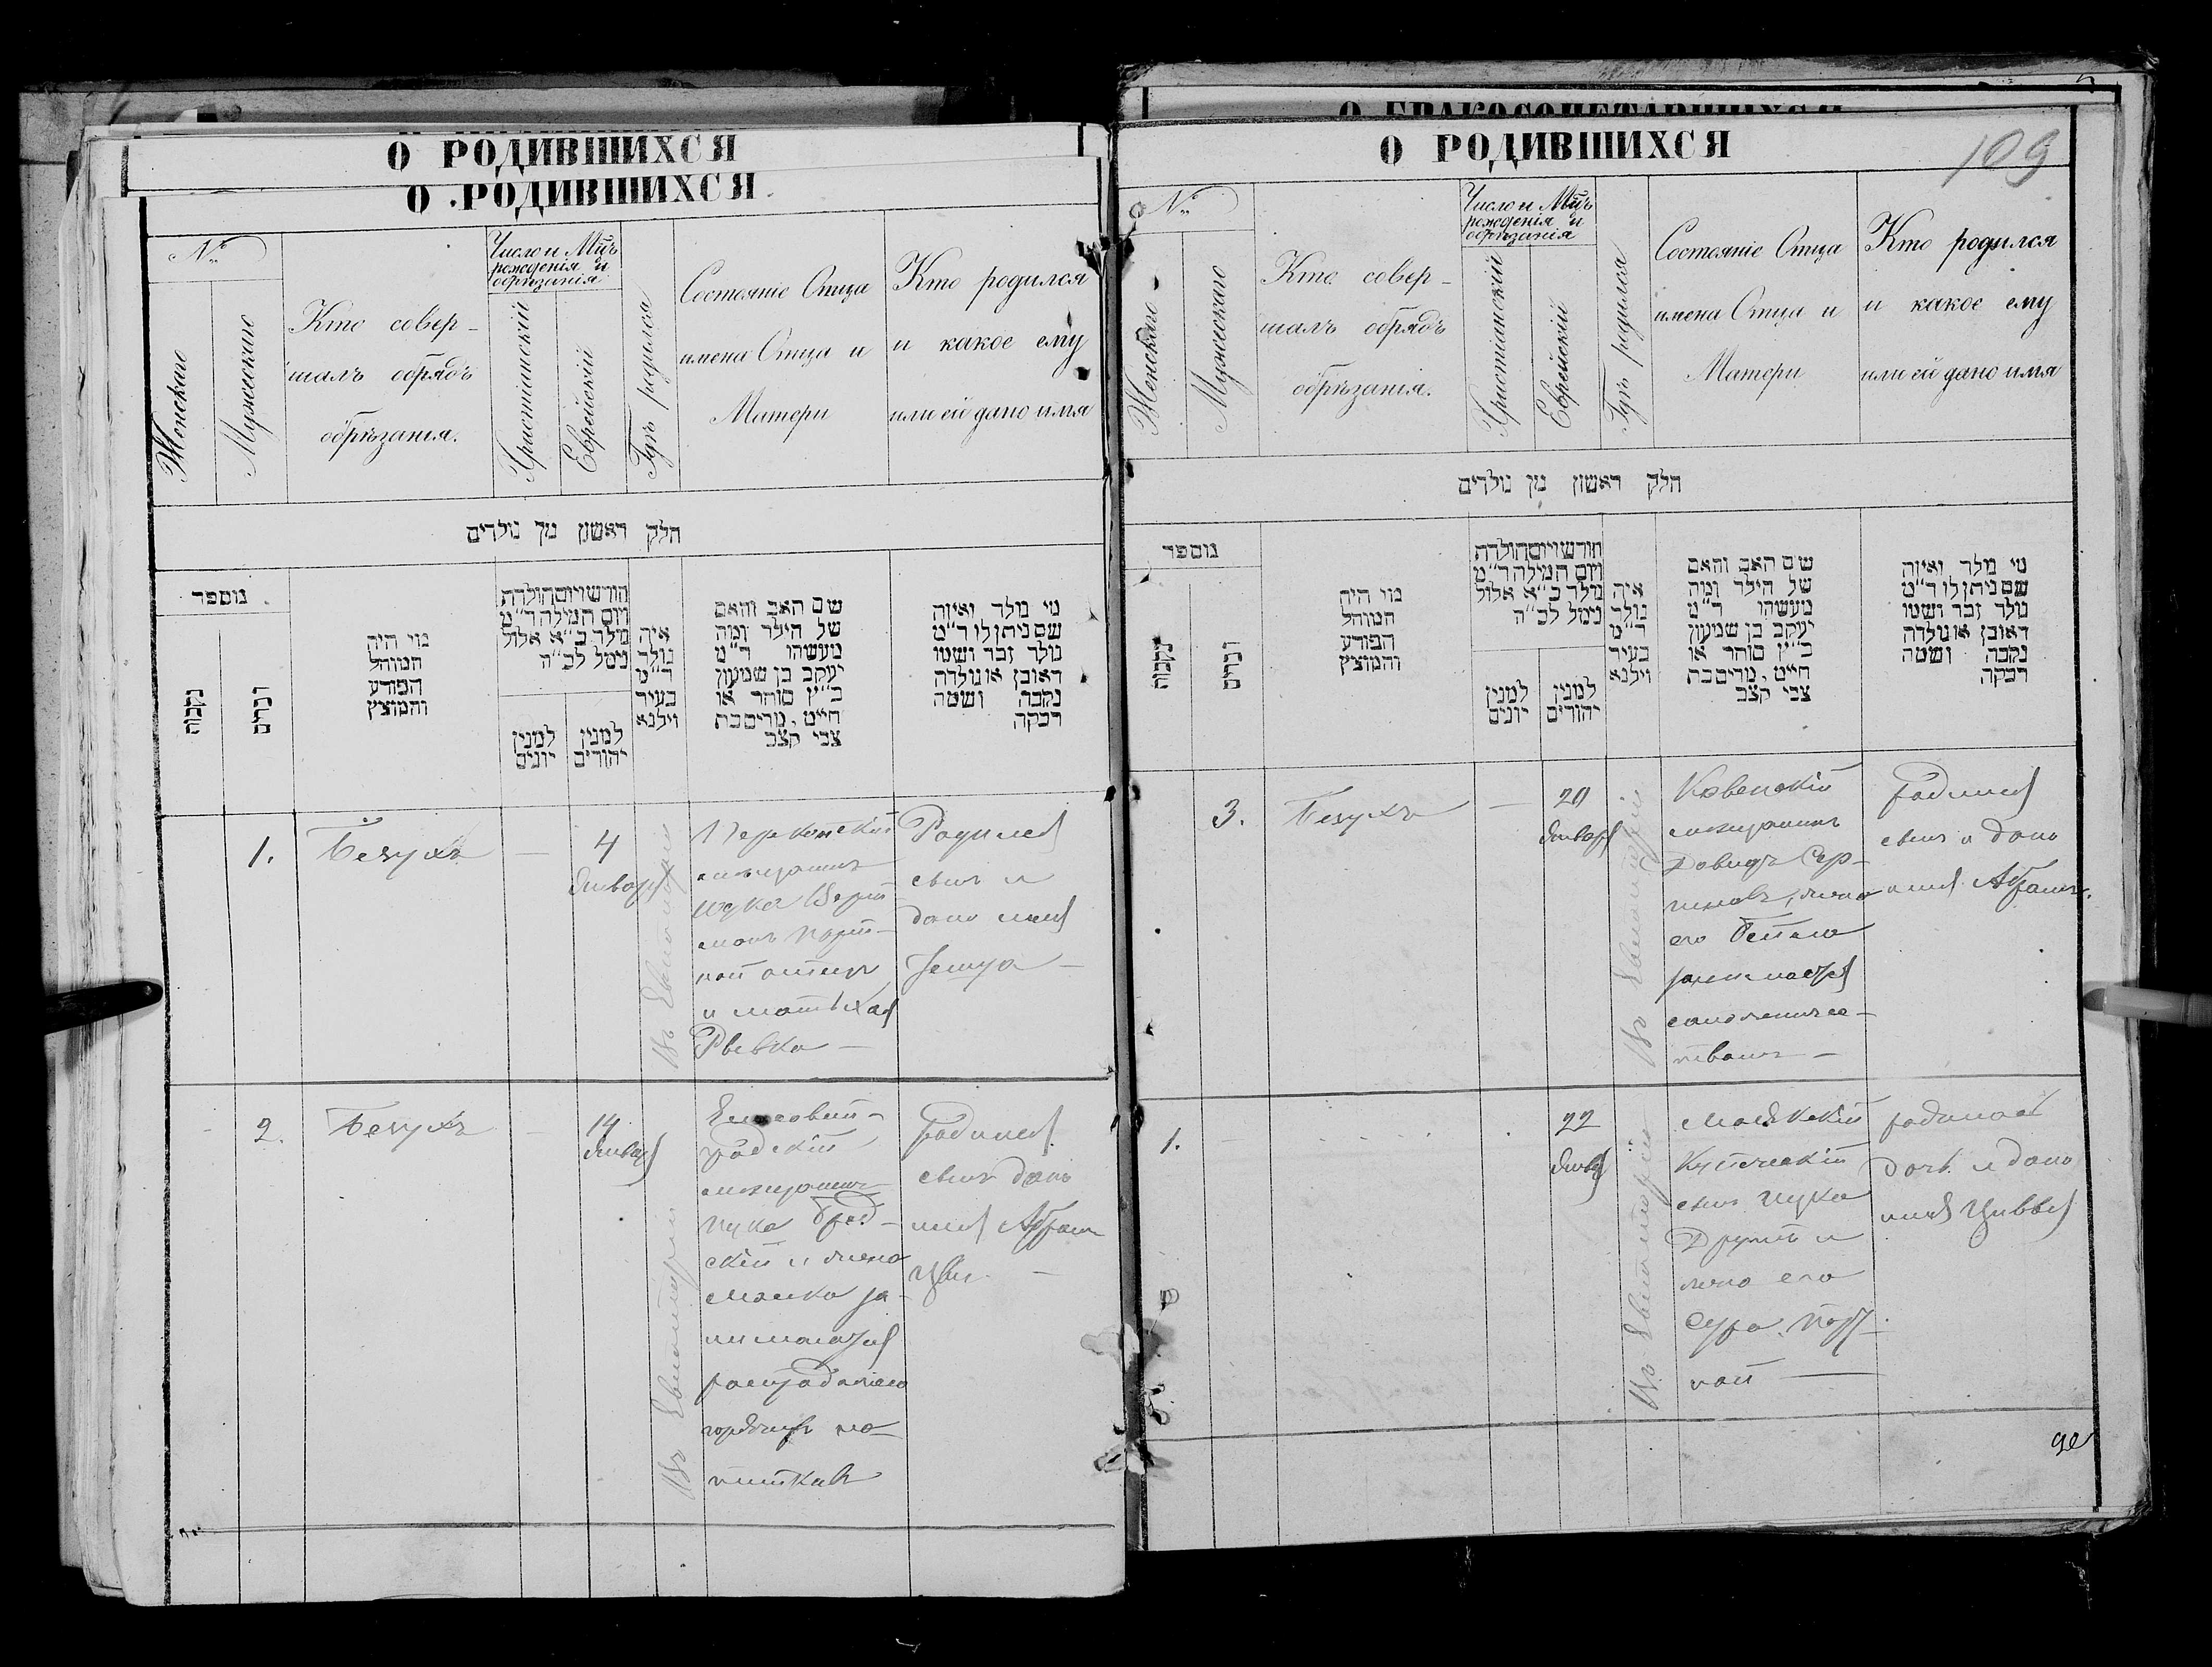 О РОДИВШИХСЯ
О РОДИВШИХСЯ
№
Женскаго
Мужескаго
Кто совер-
шалъ обрядъ
обрѣзанія.
Число и Мць
рожденія и
обрѣзанія
Христіанскій
Еврейскій
Гдѣ родился
Состояніе Отца
имена Отца и
Матери
Кто родился
и какое ему
или ей дано имя
חלק ראשון מן נולדים
נומפר
נקבות
זכרים
מי היה
המוהל
הפורע
והמוצץ
חודש ויום הולדת
ויום המילה ד״מ
נולד כ״א אלול
נימל לכ״ה
למנין
יונים
למנין
יהודים
איה
נולד
ד״מ
בעיר
וילנא
שם האב והאם
של הילד ומה
מעשהו ד״מ
יעקב בן שמעון
כ״ץ סוחר או
חייט, מרים בת
צבי קצב
מי נולד ואיזה
שם ניתן לו ד״מ
נולד זכר ושמו
ראובן או נולדה
נקבה ושמה
רבקה
1.
Безухъ
—
4
Января
Въ Евпаторіи
Перекопскій
мѣщанинъ
портъ-
ной отецъ
и мать Хая
Рывка —
Родился
сынъ и
дано имя
2.
Безухъ
14
Января
Въ Евпаторіи
Елисовет-
градскій
мѣщанинъ
скій и жена
за-
нимается
горячихъ на-
питковъ
родился
сынъ дано
имя Абрамъ
О БРАКОСОЧЕТАВШИХСЯ
О РОДИВШИХСЯ
109
№
Женскаго
Мужескаго
Кто совер-
шалъ обрядъ
обрѣзанія.
Число и Мць
рожденія и
обрѣзанія
Христіанскій
Еврейскій
Гдѣ родился
Состояніе Отца
имена Отца и
Матери
Кто родился
и какое ему
или ей дано имя
חלק ראשון מן נולדים
נומפר
נקבות
זכרים
מי היה
המוהל
הפורע
והמוצץ
חודש ויום הולדת
ויום המילה ד״מ
נולד כ״א אלול
נימל לכ״ה
למנין
יונים
למנין
יהודים
איה
נולד
ד״מ
בעיר
וילנא
שם האב והאם
של הילד ומה
מעשהו ד״מ
יעקב בן שמעון
כ״ץ סוחר או
חייט, מרים בת
צבי קצב
מי נולד ואיזה
שם ניתן לו ד״מ
נולד זכר ושמו
ראובן או נולדה
נקבה ושמה
רבקה
3.
Безухъ
—
20
Января
Въ Евпаторіи
Ковенскій
мѣщанинъ
Довидъ
жена
его
занимается
родился
сынъ и дано
имя Абрамъ.
1.
22
Янвр
Въ Евпаторіи
Купеческій
сынъ
и
жена его
Сура. порт-
ной —
родилась
дочь и дано
имя Цивья